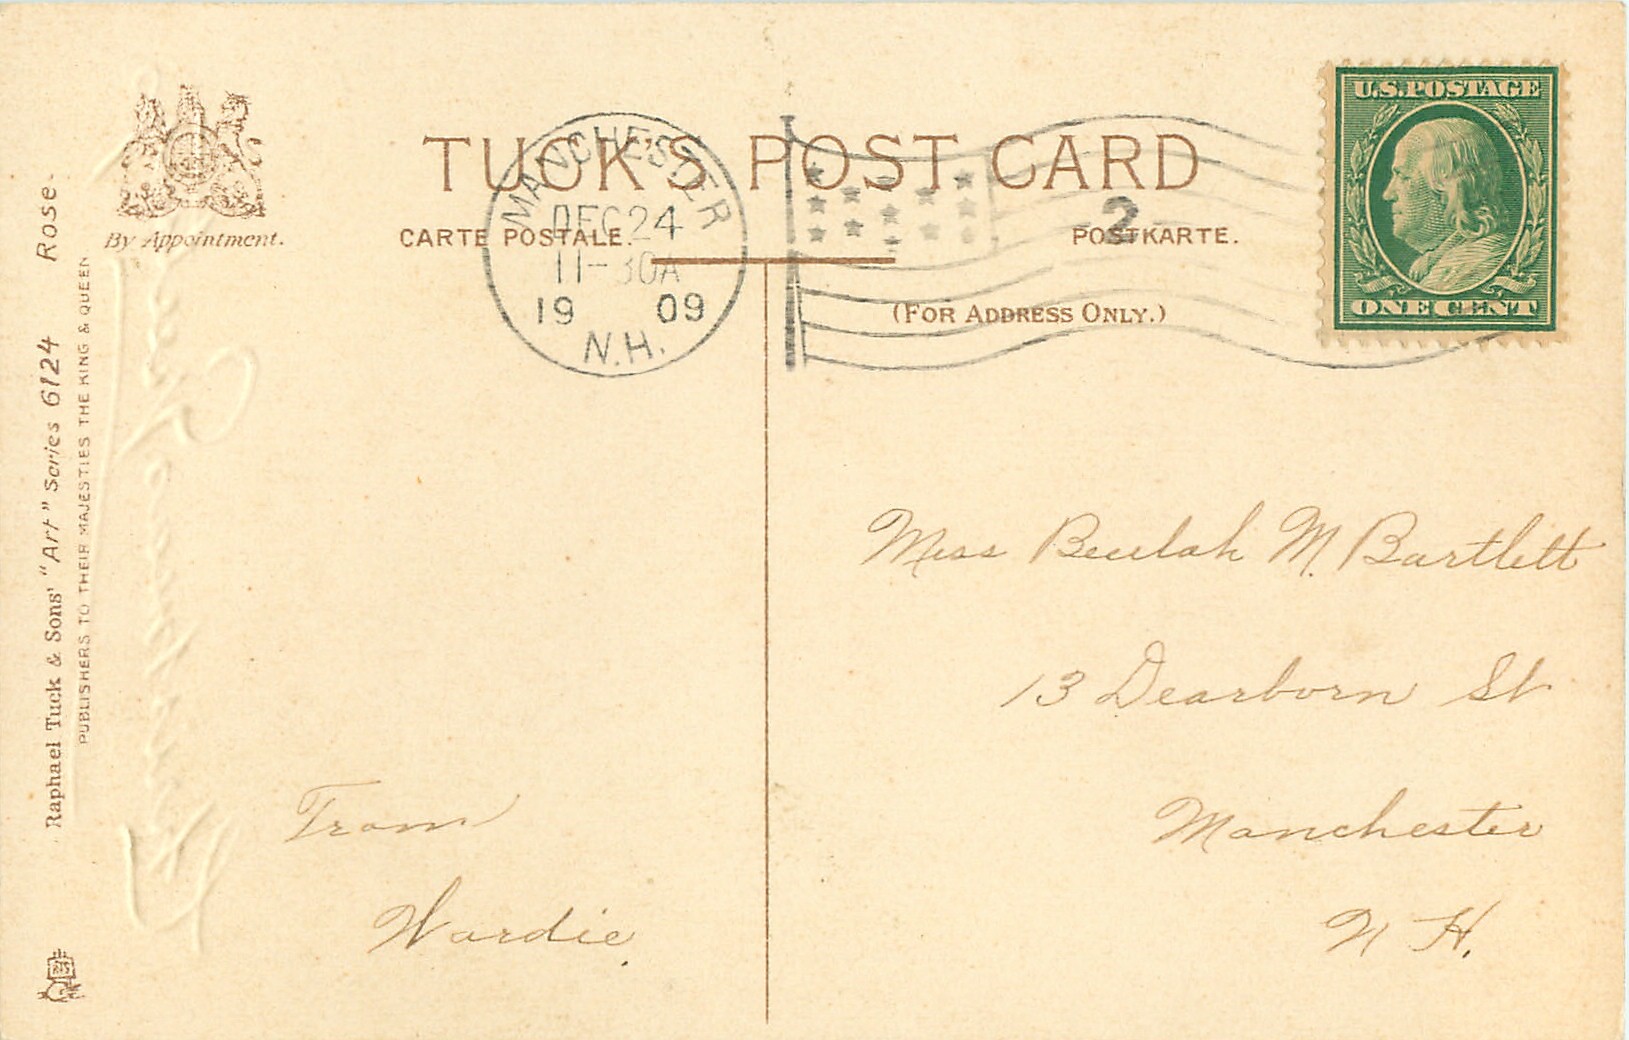 TUCK'S POST CARD
CARTE POSTALE.
POSTKARTE.
(FOR ADDRESS ONLY.)
By Appointment.
MANCHESTER
DEC 24
11-30A
19 09
N.H.
2
U.S. POSTAGE
ONE CENT
Raphael Tuck & Sons' "Art" Series 6124 Rose.
PUBLISHERS TO THEIR MAJESTIES THE KING & QUEEN
Miss Beulah M. Bartlett
13 Dearborn St
Manchester
N H.
From
Wardie.